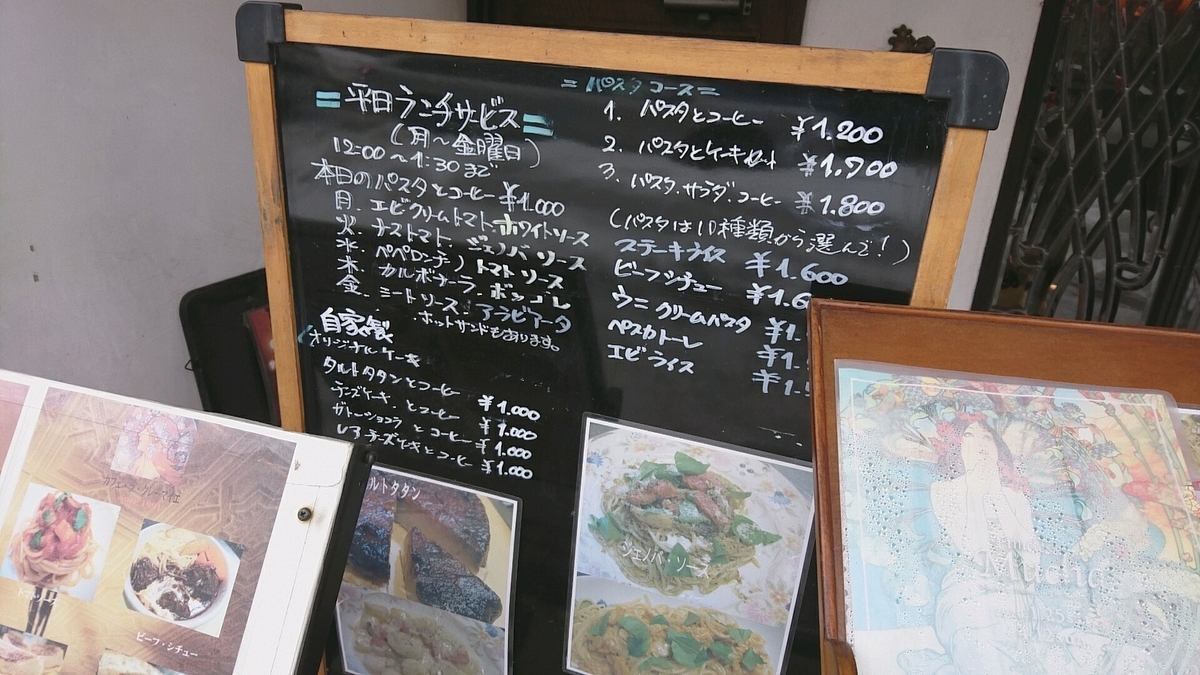 平日ランチサービス
(月～金曜日)
12:00～1:30まで
本日のパスタとコーヒー ¥1.000
月. エビクリームトマト.ホワイトソース
火. ナストマト. ジェノバソース
水. ペペロンチーノ トマトソース
木. カルボナーラ. ボッゴレ
金. ミートソース. アラビアータ
・ホットサンドもあります。
自家製
オリジナルケーキ
タルトタタンとコーヒー ¥1.000
チーズケーキ. とコーヒー ¥1.000
ガトーショコラ とコーヒー ¥1.000
レアチーズケーキとコーヒー ¥1.000
= パスタ コース =
1. パスタとコーヒー ¥1.200
2. パスタとケーキセット ¥1.700
3. パスタ.サラダ.コーヒー ¥1.800
(パスタは11種類から選んで!)
ステーキライス ¥1.600
ビーフシチュー ¥1.6
ウニクリームパスタ ¥1.
ペスカトーレ ¥1.
エビライス ¥1.
ルトタタン
ジェノバ・ソース
ビーフ・シチュー
Mucha